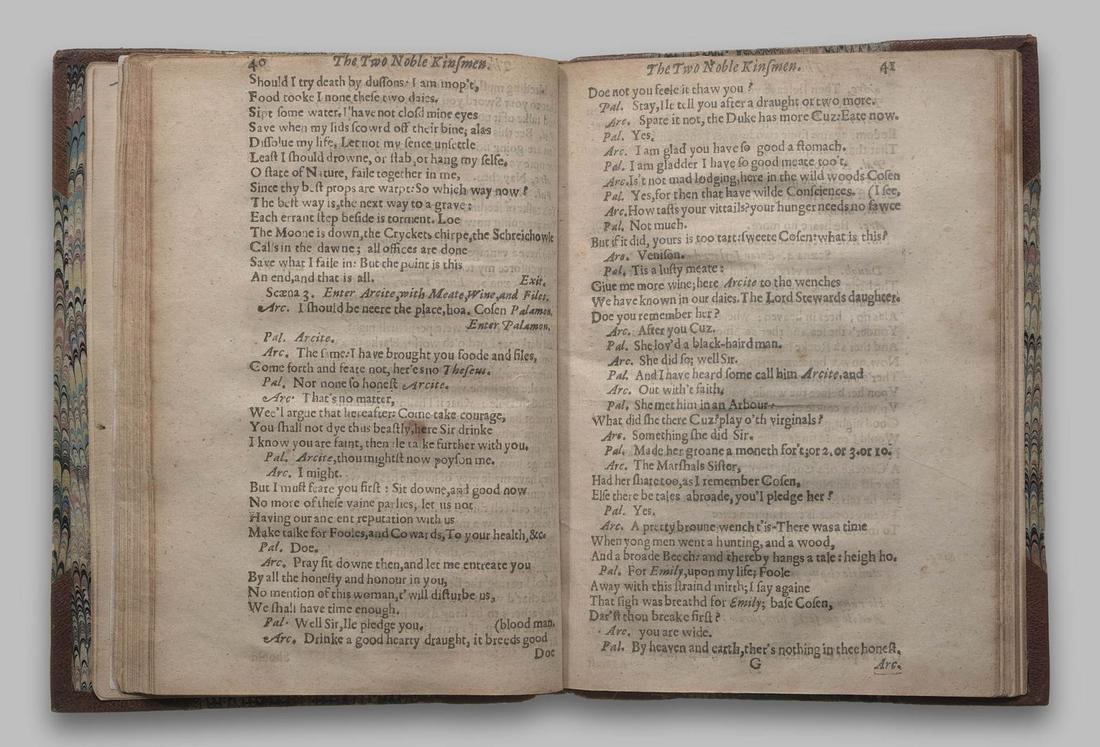 40 The Two Noble Kinſmen.
Should I try death by duſſons: I am mop't,
Food tooke I none theſe two daies.
Sipt ſome water. I have not cloſd mine eyes
Save when my lids ſcowrd off their bine; alas
Diſſolue my life, Let not my ſence unſettle
Leaſt I ſhould drowne, or ſtab, or hang my ſelfe.
O ſtate of Nature, faile together in me,
Since thy beſt props are warpt: So which way now?
The beſt way is, the next way to a grave:
Each errant ſtep beſide is torment. Loe
The Moone is down, the Cryckets chirpe, the Schreichowle
Calls in the dawne; all offices are done
Save what I faile in: But the point is this
An end, and that is all. Exit.
Scæna 3. Enter Arcite, with Meate, Wine, and Files.
Arc. I ſhould be neere the place, hoa. Coſen Palamon.
Enter Palamon.
Pal. Arcite.
Arc. The ſame: I have brought you foode and files,
Come forth and feare not, her'es no Theſeus.
Pal. Nor none ſo honeſt Arcite.
Arc. That's no matter,
Wee'l argue that hereafter: Come take courage,
You ſhall not dye thus beaſtly, here Sir drinke
I know you are faint, then ile talke further with you.
Pal. Arcite, thou mightſt now poyſon me.
Arc. I might.
But I muſt feare you firſt: Sit downe, and good now
No more of theſe vaine parlies; let us not
Having our ancient reputation with us
Make talke for Fooles, and Cowards, To your health, &c.
Pal. Doe.
Arc. Pray ſit downe then, and let me entreate you
By all the honeſty and honour in you,
No mention of this woman, t' will diſturbe us,
We ſhall have time enough.
Pal. Well Sir, Ile pledge you. (blood man.
Arc. Drinke a good hearty draught, it breeds good
Doe
The Two Noble Kinſmen. 41
Doe not you feele it thaw you?
Pal. Stay, Ile tell you after a draught or two more.
Arc. Spare it not, the Duke has more Cuz: Eate now.
Pal. Yes.
Arc. I am glad you have ſo good a ſtomach.
Pal. I am gladder I have ſo good meate too't.
Arc. Is't not mad lodging, here in the wild woods Coſen
Pal. Yes, for then that have wilde Conſciences. (I ſee,
Arc. How taſts your vittails? your hunger needs no ſawce
Pal. Not much.
But if it did, yours is too tart: ſweete Coſen: what is this?
Arc. Veniſon.
Pal. Tis a luſty meate:
Giue me more wine; here Arcite to the wenches
We have known in our daies. The Lord Stewards daughter.
Doe you remember her?
Arc. After you Cuz.
Pal. She lov'd a black-haird man.
Arc. She did ſo; well Sir.
Pal. And I have heard ſome call him Arcite, and
Arc. Out with't faith.
Pal. She met him in an Arbour:
What did ſhe there Cuz? play o'th virginals?
Arc. Something ſhe did Sir.
Pal. Made her groane a moneth for't; or 2. or 3. or 10.
Arc. The Marſhals Siſter,
Had her ſhare too, as I remember Coſen,
Elſe there be tales abroade, you'l pledge her?
Pal. Yes.
Arc. A pretty broune wench t'is—There was a time
When yong men went a hunting, and a wood,
And a broade Beech: and thereby hangs a tale: heigh ho.
Pal. For Emily, upon my life; Foole
Away with this ſtraind mirth; I ſay againe
That ſigh was breathd for Emily; baſe Coſen,
Dar'ſt thou breake firſt?
Arc. you are wide.
Pal. By heaven and earth, ther's nothing in thee honeſt.
G Arc.